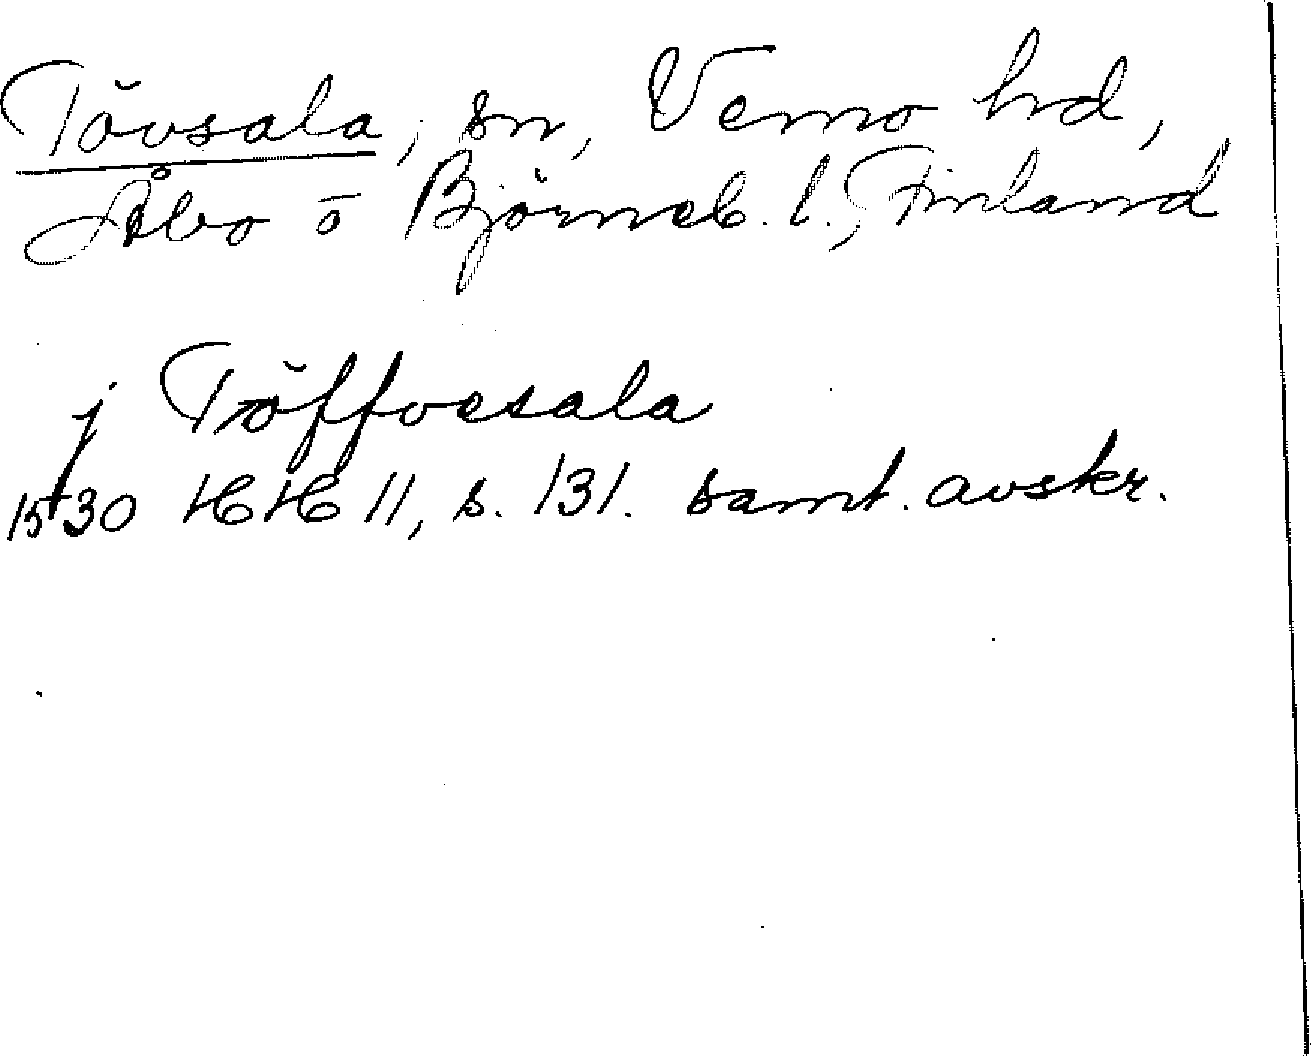 Tövsala, sn, Vemo hrd,
Åbo o Björneb. l., Finland
j Töffvesala
1530 HH 11, s. 131. samt. avskr.